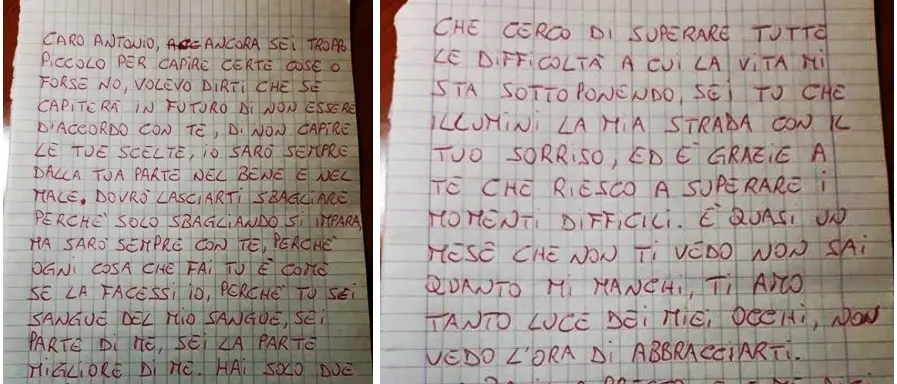 CARO ANTONIO, ANCORA SEI TROPPO
PICCOLO PER CAPIRE CERTE COSE O
FORSE NO, VOLEVO DIRTI CHE SE
CAPITERÀ IN FUTURO DI NON ESSERE
D'ACCORDO CON TE, DI NON CAPIRE
LE TUE SCELTE, IO SARÒ SEMPRE
DALLA TUA PARTE NEL BENE E NEL
MALE. DOVRÒ LASCIARTI SBAGLIARE
PERCHE' SOLO SBAGLIANDO SI IMPARA
MA SARÒ SEMPRE CON TE, PERCHE'
OGNI COSA CHE FAI TU È COME
SE LA FACESSI IO, PERCHE TU SEI
SANGUE DEL MIO SANGUE, SEI
PARTE DI ME, SEI LA PARTE
MIGLIORE DI ME. HAI SOLO DUE
CHE CERCO DI SUPERARE TUTTE
LE DIFFICOLTÀ A CUI LA VITA MI
STA SOTTOPONENDO, SEI TU CHE
ILLUMINI LA MIA STRADA CON IL
TUO SORRISO, ED E' GRAZIE A
TE CHE RIESCO A SUPERARE I
MOMENTI DIFFICILI. È QUASI UN
MESE CHE NON TI VEDO NON SAI
QUANTO MI MANCHI, TI AMO
TANTO LUCE DEI MIEI OCCHI, NON
VEDO L'ORA DI ABBRACCIARTI.